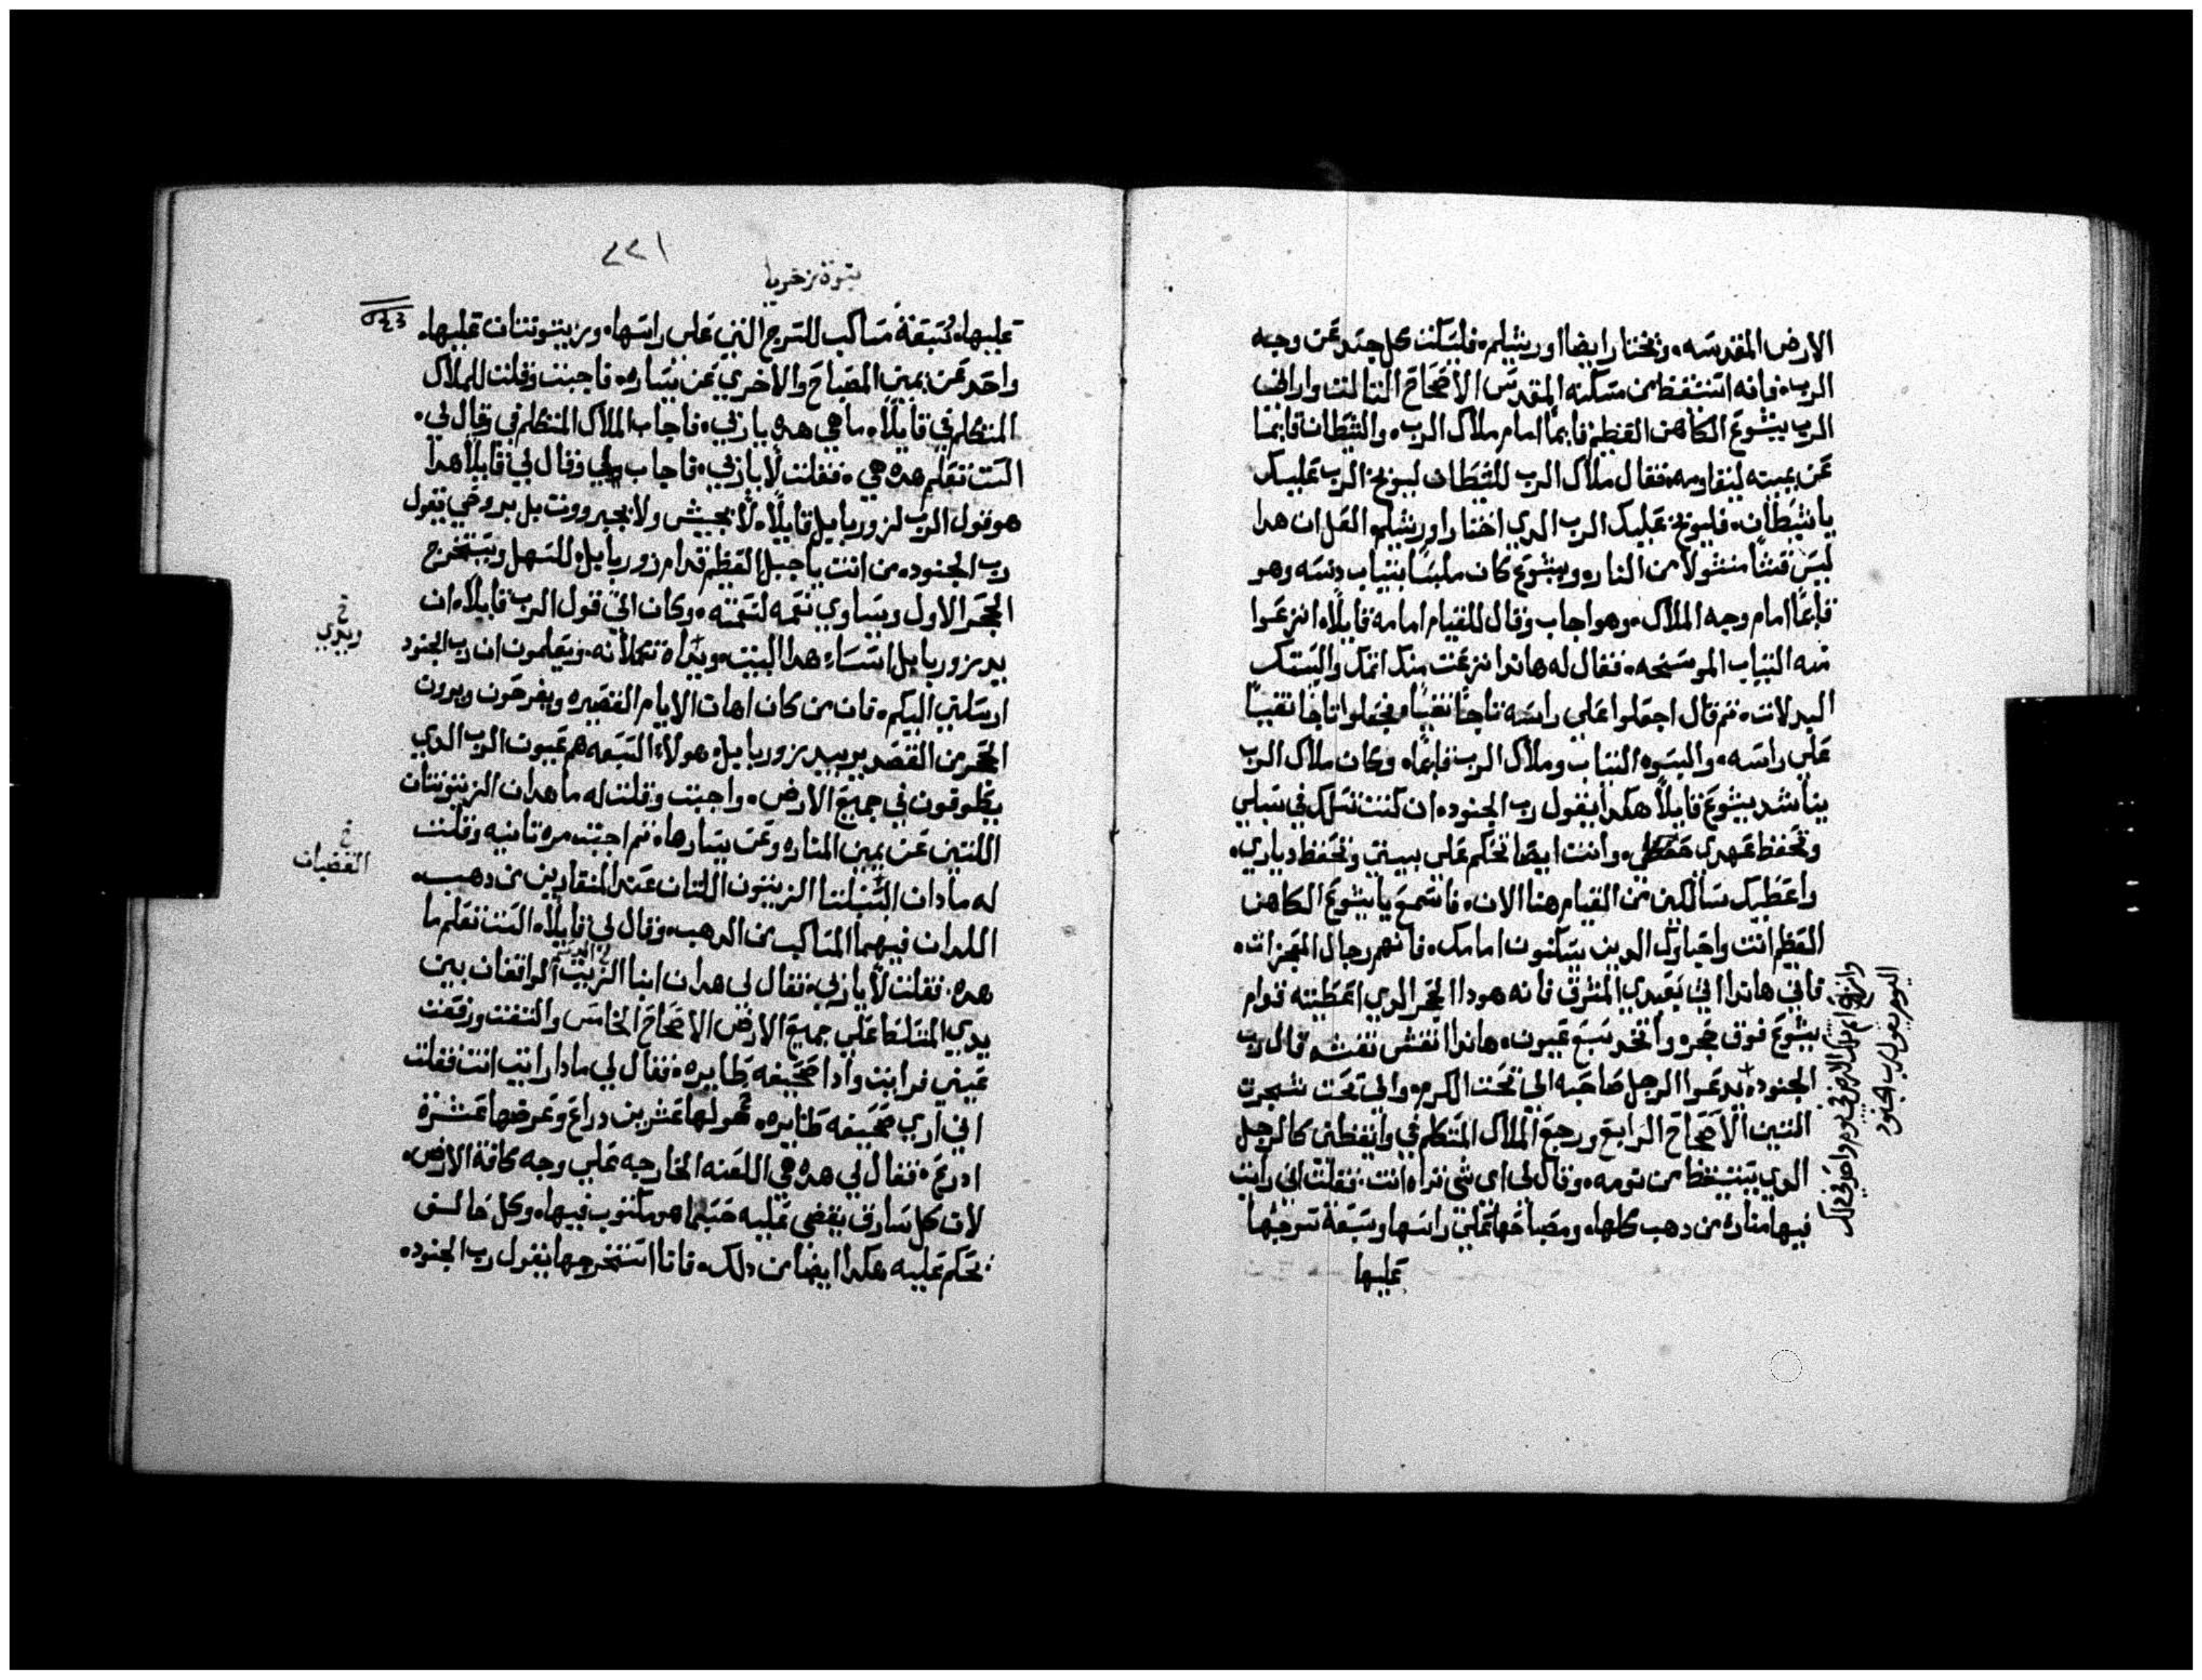 الارض المقدسه. ونختار ايضا اورشيلم. فليسكت كل جسد عن وجه
الرب. فانه استيقظ من مسكنه المقدس الاصحاح التالت واراني
الرب يشوع الكاهن العظيم قايما امام ملاك الرب. والشيطان قايما
عن يمينه ليقاومه. فقال ملاك الرب للشيطان ليوبخ الرب عليك
يا شيطان. فليوبخ عليك الرب الدي اختار اورشيلم العل ان هدا
ليس منشولا من النار. ويشوع كان ملبسا بثياب دنسه وهو
قايما امام وجه الملاك. وهو اجاب وقال للقيام امامه قايلا. انزعوا
عنه التياب الموسخه. فقال له هاندا نزعت منك اتمك والبستك
البدلات. تم قال اجعلوا علي راسه تاجا نقيا. فجعلوا تاجا نقيا
علي راسه. والبسوه التياب وملاك الرب قايما. وكان ملاك الرب
يناشد يشوع قايلا هكدا يقول رب الجنود. ان كنت تسلك في سبلي
وتحفظ عهدي. وانت ايضا تحكم علي بيتي وتحفظ دياري.
واعطيك سالكين من القيام هنا الان. فاسمع يا يشوع الكاهن
العظيم انت واحباوك الدين يسكنون امامك. فانهم رجال المعجزات.
فاني هاندا اتي بعبدي المشرق فانه هودا الحجر الدي اعطيته قدام
يشوع فوق حجره واتخد سبع عيون. هاندا انقش نقشه قال رب
الجنود. يدعوا الرجل صاحبه الي تحت الكرم. والي تحت شجرت
التين الاصحاح الرابع ورجع الملاك المتكلم في وايقظني كالرجل
الدي يستيقظ من نومه. وقال لي اي شي تراه انت. فقلت اني رايت
فيها مناره من دهب كلها. ومصباحها علي راسها وسبعة سرجها
عليها
اليوم يقول رب الجنود
نبوة زخريا
٢٢١
عليها. سبعة مساكب للسرج التي علي راسها. وزيتونتان عليها.
واحد عن يمين المصباح والاخري عن يساره. فاجبت وقلت للملاك
المتكلم في قايلا. ما هي هده يا ربي. فاجاب الملاك المتكلم في وقال لي.
الست تعلم هده هي. فقلت لا يا ربي. فاجاب وقال لي قايلا هدا
هو قول الرب لزوربابيل قايلا. لا بجيش ولا بجبرووت بل بروحي يقول
رب الجنود. من انت يا جبل العظيم قدام زوربابيل للسهل ويستخرج
الحجر الاول ويساوي نعمه لنعمته. وكان الي قول الرب قايلا. ان
يد زوربابيل اسسا هدا البيت. ويداه تكملانه. وتعلمون ان رب الجنود
ارسلني اليكم. فان من كان اهان الايام القصيره ويفرحون ويرون
الحجر من القصدير بيد زوربابيل هولاء السبعه هم عيون الرب الدي
يطوفون في جميع الارض. واجبت وقلت له ما هدان الزيتونتان
اللتين عن يمين المناره وعن يسارها. تم اجبت مره تانيه وقلت
له مادان السنبلتا الزيتون اللتان عند المنقارين من دهب.
اللدان فيهما المساكب من الدهب. وقال لي قايلا. الست تعلم ما
هده. فقلت لا يا ربي. فقال لي هدان ابنا الزيت الواقفان بين
يدي المتسلط علي جميع الارض الاصحاح الخامس والتفت ورفعت
عيني فرايت وادا صحيفه طايره. فقال لي مادا رايت انت فقلت
اني اري صحيفه طايره. طولها عشرين دراع وعرضها عشرة
ادرع. فقال لي هده هي اللعنه الخارجه علي وجه كافة الارض.
لان كل سارق يقضي عليه حسبما هو مكتوب فيها. وكل حالف
يحكم عليه هكدا ايضا من دلك. فانا استخرجها يقول رب الجنود.
خ
ويدي
خ
القضبان